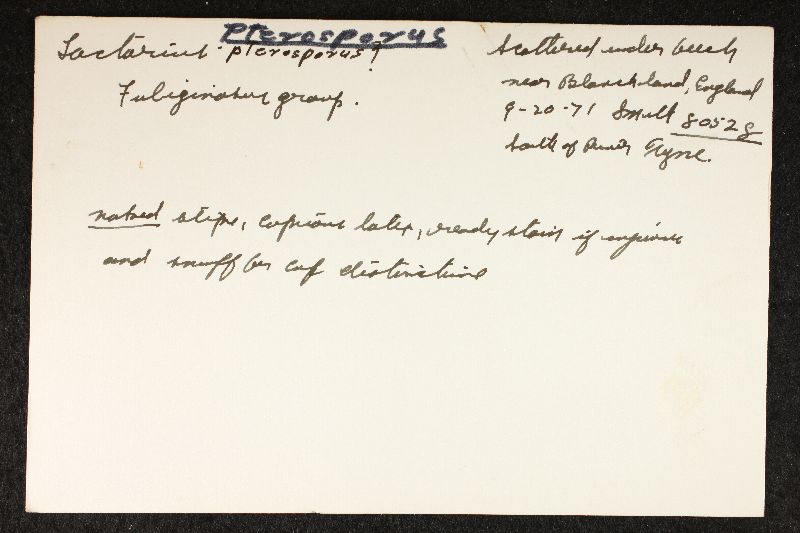 Pterosporus
Lactarius - pterosporus?
Fuliginosus group.
Scattered under beech
near Blanchland, England
9-20-71 Smith 80528
South of River Tyne.
naked stipe, copious latex, ready stain if injured
and snuff br cap distinctive